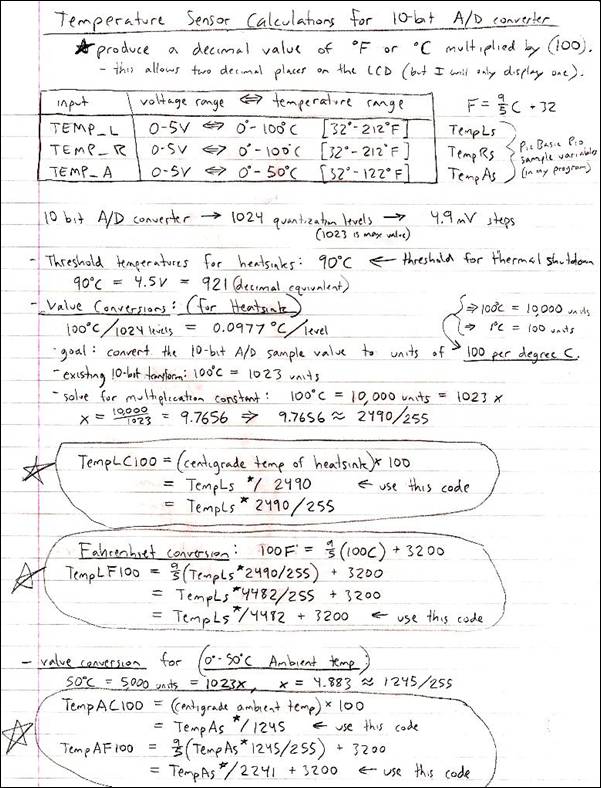 Temperature Sensor Calculations for 10-bit A/D converter
★ produce a decimal value of °F or °C multiplied by (100).
- this allows two decimal places on the LCD (but I will only display one).
input voltage range ⇔ temperature range F = 9/5 C + 32
TEMP_L 0-5V ⇔ 0°-100°C [32°-212°F] TempLs
TEMP_R 0-5V ⇔ 0°-100°C [32°-212°F] TempRs
TEMP_A 0-5V ⇔ 0°-50°C [32°-122°F] TempAs
Pic Basic Pro
sample variables
(in my program)
10 bit A/D converter → 1024 quantization levels → 4.9mV steps
(1023 is max value)
- Threshold temperatures for heatsinks: 90°C ← threshold for thermal shutdown
90°C = 4.5V = 921 (decimal equivalent)
- Value Conversions: (for Heatsink)
⇒ 100°C = 10,000 units
⇒ 1°C = 100 units
100°C/1024 levels = 0.0977°C/level
- goal: convert the 10-bit A/D sample value to units of 100 per degree C.
- existing 10-bit transform: 100°C = 1023 units
- solve for multiplication constant: 100°C = 10,000 units = 1023 x
x = 10,000/1023 = 9.7656 ⇒ 9.7656 ≈ 2490/255
TempLC100 = (centigrade temp of heatsink)* 100
= TempLs */ 2490 ← use this code
= TempLs * 2490/255
Fahrenheit conversion: 100F = 9/5 (100C) + 3200
TempLF100 = 9/5 (TempLs*2490/255) + 3200
= TempLs*4482/255 + 3200
= TempLs*/4482 + 3200 ← use this code
- value conversion for (0°-50°C Ambient temp)
50°C = 5,000 units = 1023x, x = 4.883 ≈ 1245/255
TempAC100 = (centigrade ambient temp) * 100
= TempAs */1245 ← use this code
TempAF100 = 9/5 (TempAs*1245/255) + 3200
= TempAs*/2241 + 3200 ← use this code